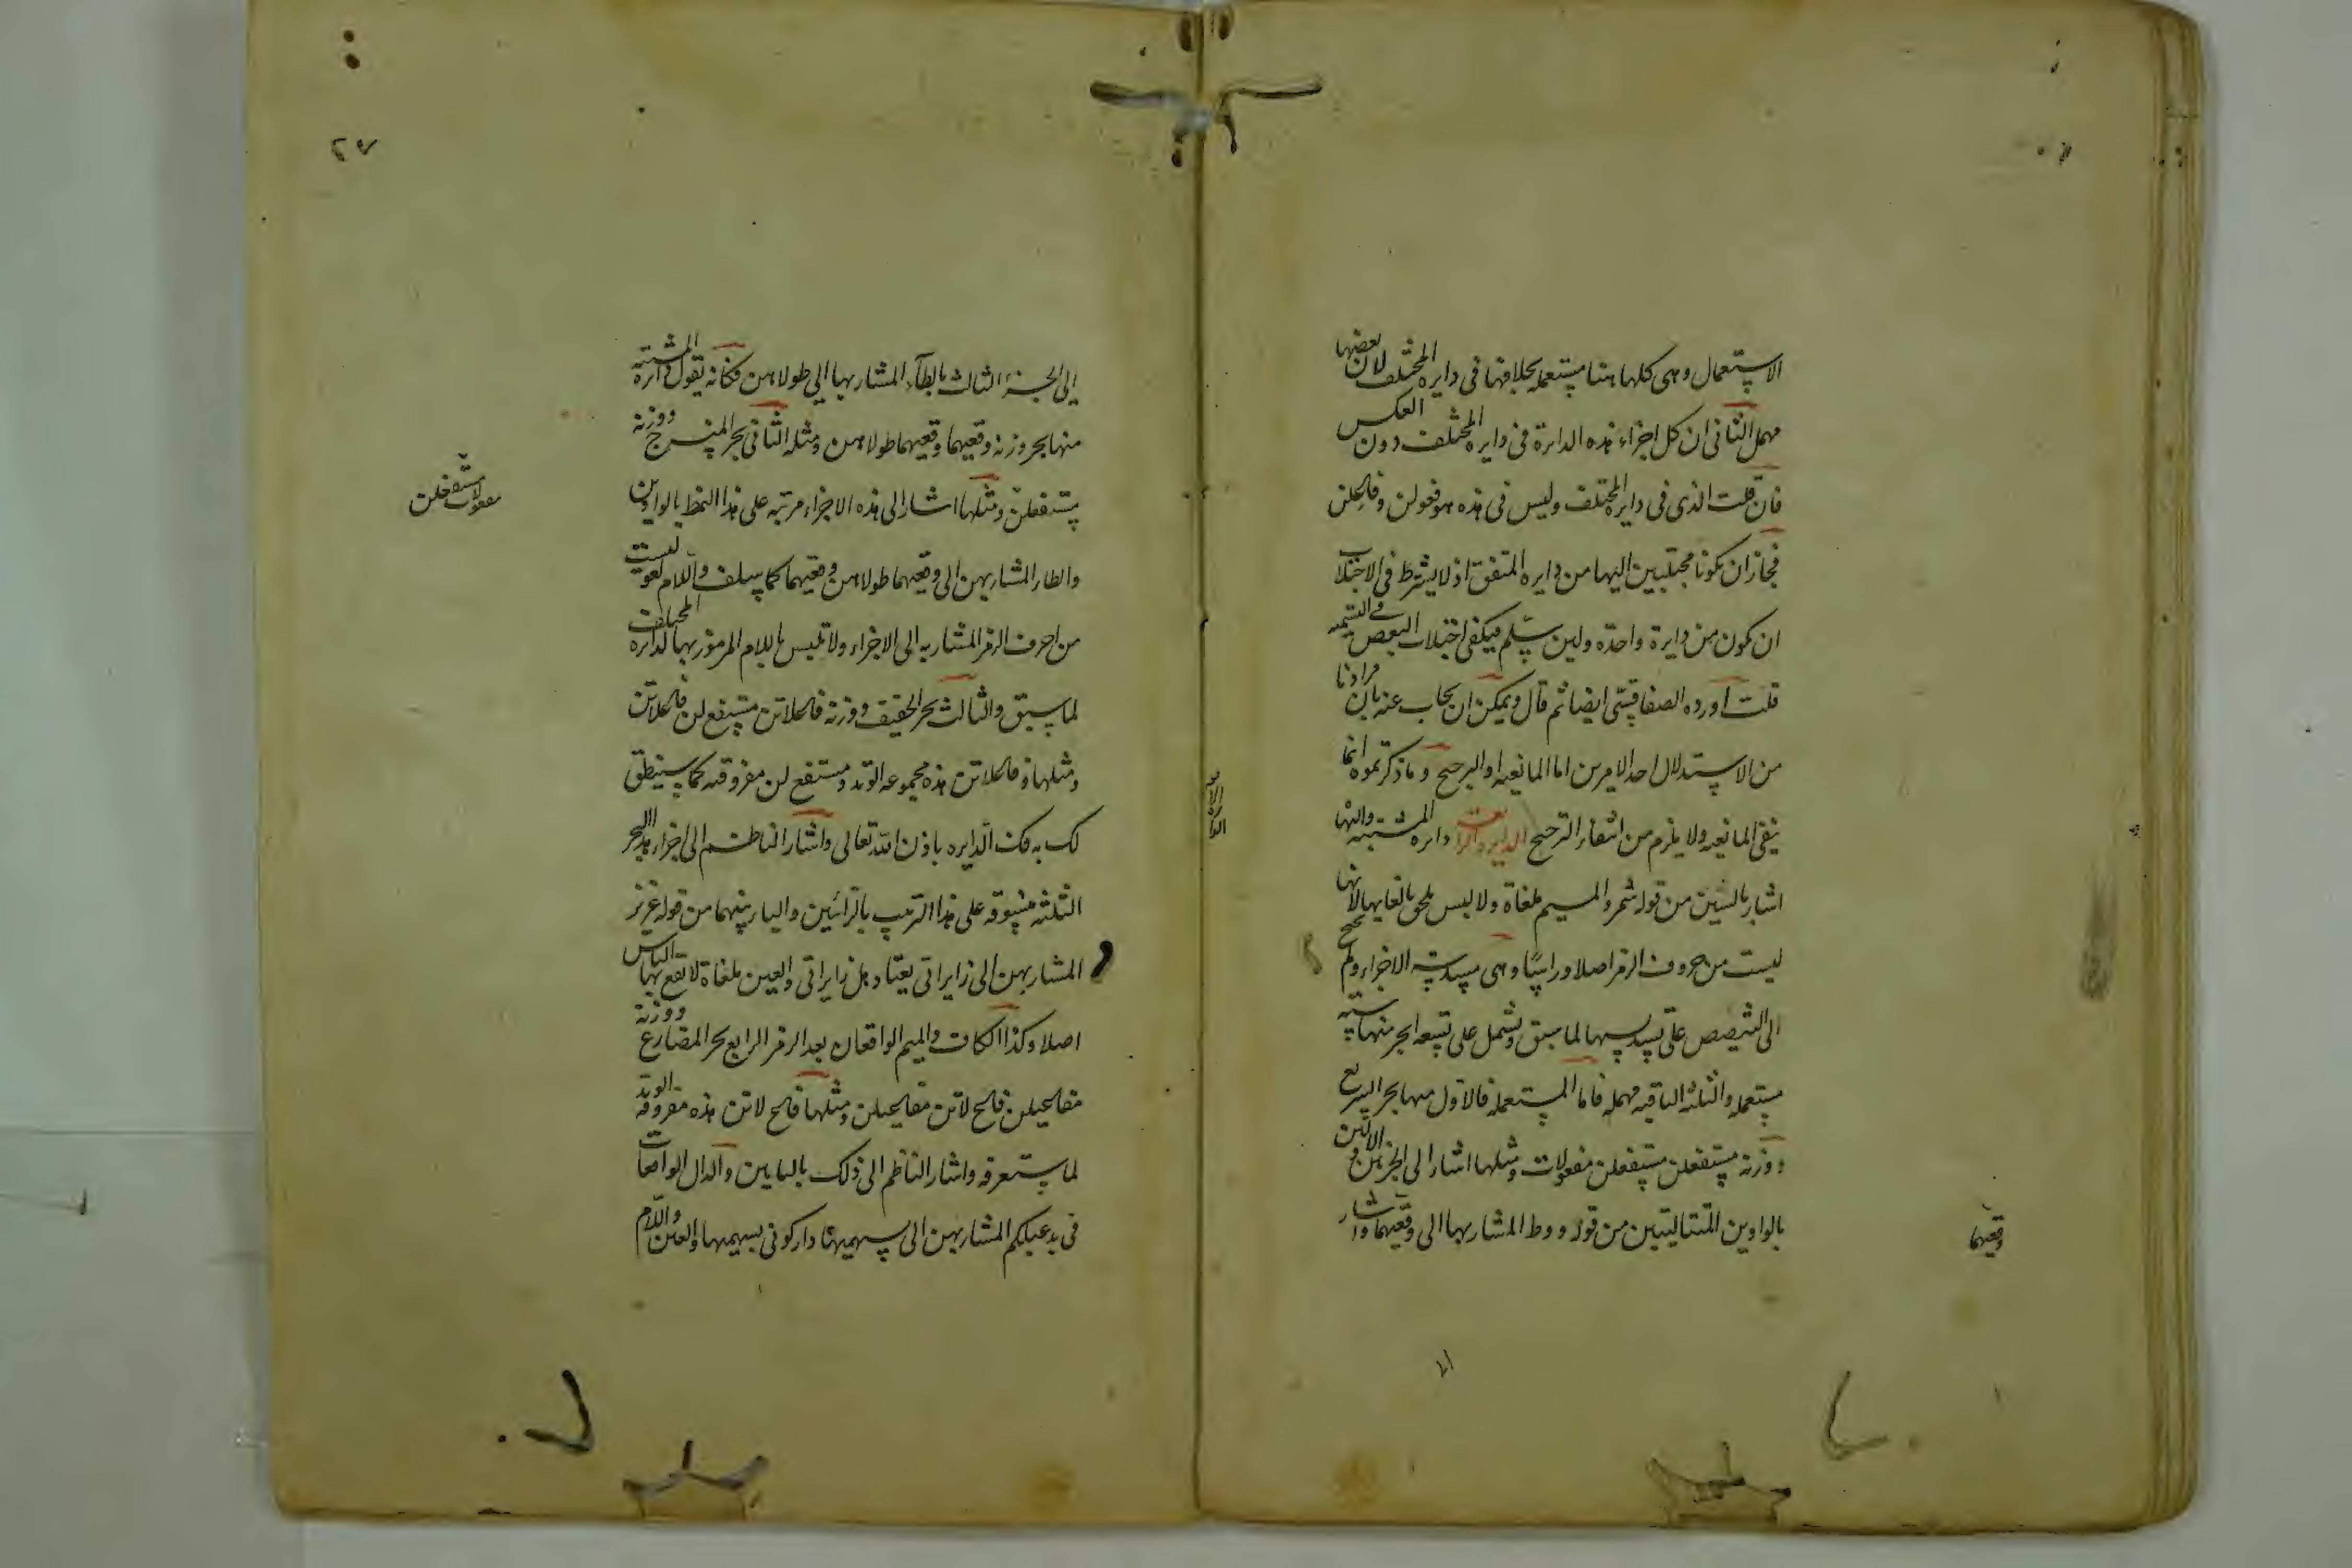 الاستعمال وهى كلها هنا مستعمله بخلافها فى دايره المختلف لان بعضها
مهمل الثانى ان كل اجزاء هذه الدايرة فى دايره المختلف دون العكس
فان قلت الذى فى دايره المختلف وليس فى هذه هو فعولن وفاعلن
فجاز ان يكونا مجتلبين اليها من دايره المتفق اذ لا يشترط فى الاجتلاب
ان يكون من دايرة واحدة ولين سلم فيكفى اجتلاب البعض فى التسميه
قلت اورده الصفاقسى ايضا ثم قال ويمكن ان يجاب عنه بان مرادنا
من الاستدلال احد الامرين اما المانعيه او الترجيح وما ذكرتموه انما
ينفى المانعيه ولا يلزم من انتفاء الترجيح الدايره الرابعة دايره المشتبه واليها
اشار بالشين من قوله شمر والميم ملغاة ولا لبس يلحق بالغايها لانها
ليست من حروف الرمز اصلا وراسا وهى مسدسة الاجزاء ولم يحتج
الى التنصيص على تسديسها لما سبق وتشمل على تسعه ابحر منها سته
مستعمله والثلثه الباقيه مهمله فاما المستعمله فالاول منها بحر السريع
ووزنه مستفعلن مستفعلن مفعولات ومثلها اشار الى الجزءين الاولين
بالواوين المتتاليتين من قوله ووط المشار بها الى وقعيهما واشار
وقعيهما
الى الجزء الثالث بالطاء المشار بها الى طولاهن فكانه يقول دائره المشتبه
منها بحر وزنه وقعيهما وقعيهما طولاهن ومثله الثانى بحر المنسرح ووزنه
مستفعلن ومثلها اشار الى هذه الاجزاء مرتبه على هذا النمط بالواوين
مفعولات مستفعلن
والطاء المشار بهن الى وقعيهما طولاهن وقعيهما كما سلف واللام لغو ليست
من احرف الرمز المشار به الى الاجزاء ولا تلبس باللام المرموز بها لدائره المختلف
لما سبق والثالث بحر الخفيف ووزنه فاعلاتن مستفع لن فاعلاتن
ومثلها وفاعلاتن هذه مجموعه الوتد ومستفع لن مفروقته كما سينطق
لك به فك الدايره باذن الله تعالى واشار الناظم الى اجزاء هذا البحر
الثلثه مسوقه على هذا الترتيب بالزائين والياء بينهما من قوله عزيز
المشار بهن الى زايراتى يعتاد هل زايراتى والعين ملغاة لا يقع بها الباس
اصلا وكذا الكاف والميم الواقعان بعد الرمز الرابع بحر المضارع ووزنه
مفاعيلن فاع لاتن مفاعيلن ومثلها فاع لاتن هذه مفروقه الوتد
لما ستعرفه واشار الناظم الى ذلك بالبايين والدال الواقعات